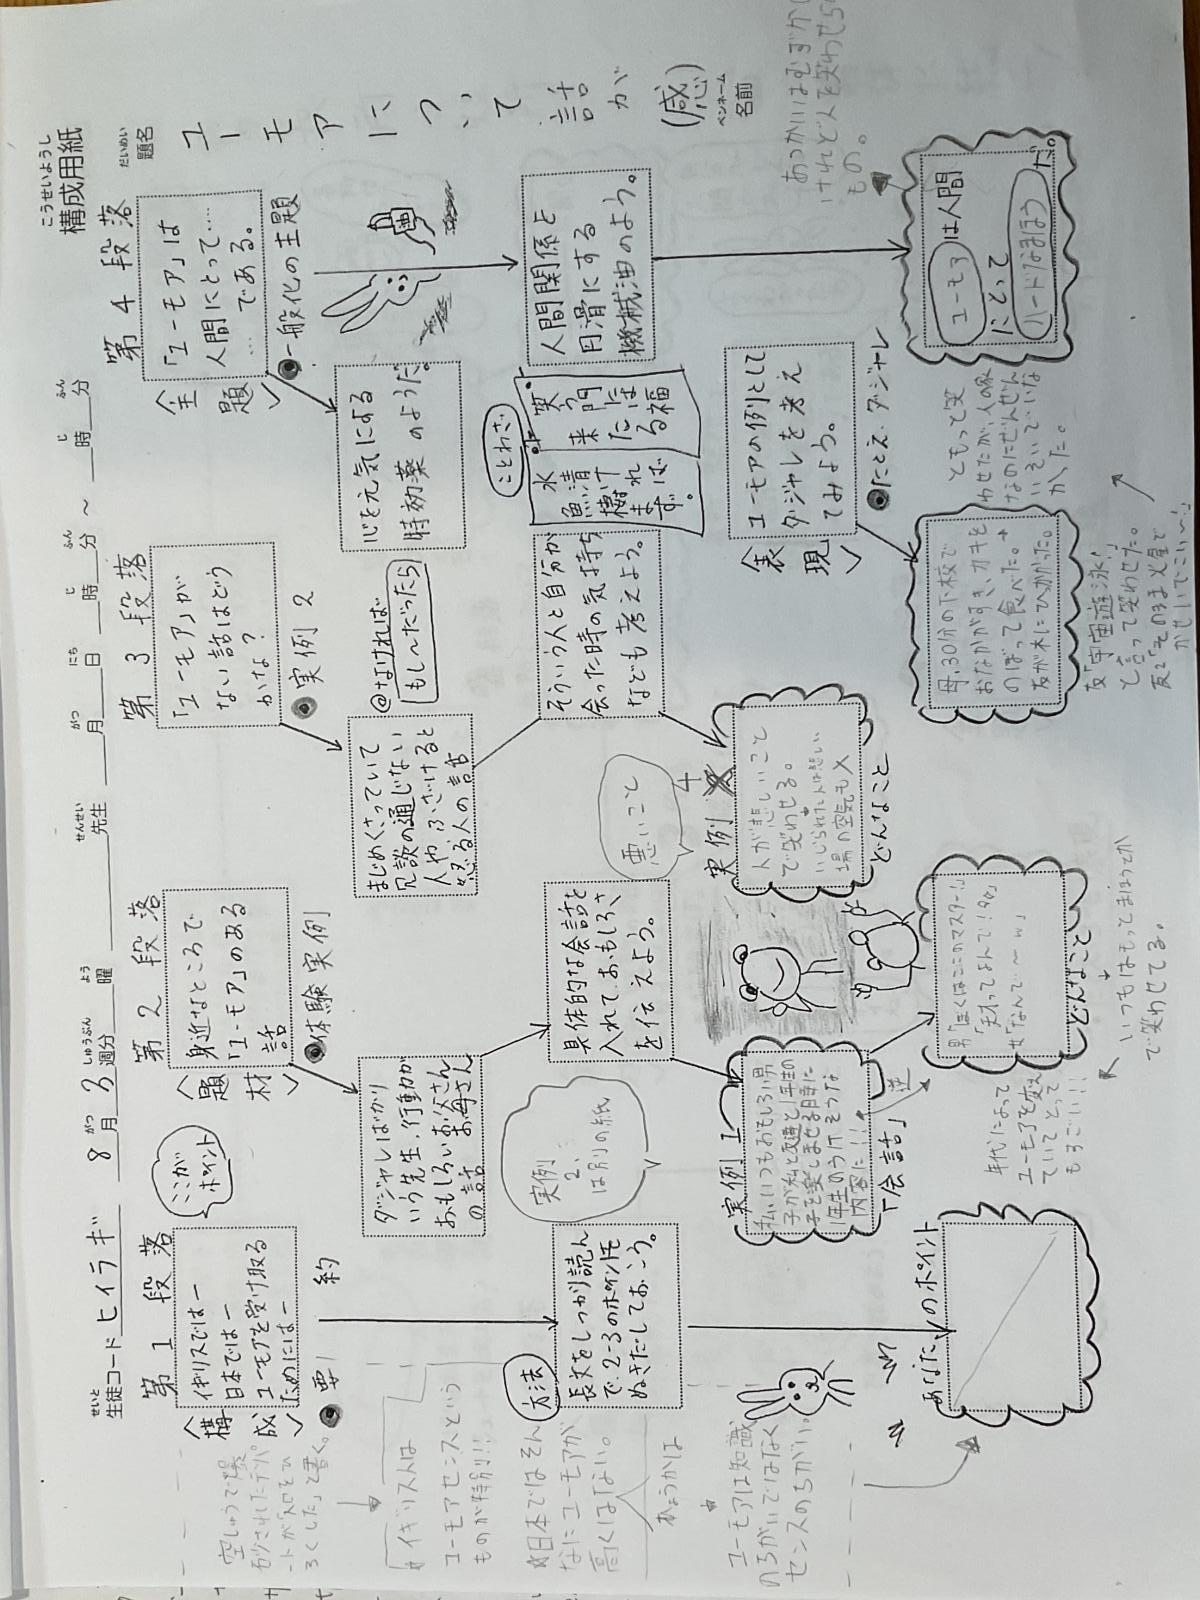 こうせいようし
構成用紙
せいと
生徒コード ヒイラギ 8月3週分 曜
がつ しゅうぶん よう
せんせい
先生
がつ にち じ ふん じ ふん
月 日 時 分 ～ 時 分
だいめい
題名
ユーモアについて
話が
(感)
ペンネーム
名前
第1段落
〈構成〉
イギリスではー
日本ではー
ユーモアを受け取る
ためにはー
●要約
ここが
ポイント
方法
長文をしっかり読ん
で、2-3のポイントを
ぬきだしておこう。
あなたのポイント
イギリス人は
ユーモアセンスという
ものが特別!!
☆日本ではそん
なにユーモアが
高くはない。
ユーモアは知識
のちがいではなく
センスのちがい。
第2段落
〈題材〉
身近なところで
「ユーモア」のある
話
●体験実例
ダジャレばかり
いう先生、行動が
おもしろいお父さん
お母さん
の話
具体的な会話を
入れて、おもしろさ
を伝えよう。
実例
2、
は別の紙
実例1
私、いつもおもしろい男
子が私と友達と1年生の
子を楽しませる時に
1年生のうけそうな
内容に!!!
「会話」
逆
男「ぼくはここのマスター!」
どんなこと
いつもはもっとまほうとか
で笑わせてる。
年代によって
ユーモアを変え
ていてとって
もすごい!!
第3段落
「ユーモア」が
ない話はどう
かな？
●実例2
@なければ
もし～だったら
まじめくさっていて
冗談の通じない
人や、ふざけると
怒る人の話
そういう人と自分が
会った時の気持ち
なども考えよう。
悪いこと
実例4
人が悲しいこと
で笑わせる。
いじられた人は悲しい
場の空気も×
どんなこと
第4段落
〈主題〉
「ユーモア」は
人間にとって…
…である。
●一般化の主題
心を元気にする
特効薬のようだ。
人間関係を
円滑にする
機械油のよう。
ことわざ
笑う門には
福来たる
水清ければ
魚棲まず。
〈表現〉
ユーモアの例として
ダジャレを考え
てみよう。
●たとえ・ダジャレ
母、30分の下校で
おなかがすき、カキを
のぼって食べた。→
友が木にひっかかった。
友「宇宙遊泳!」
と言って笑わせた。
友2「そのまま火星で
かせいでこい～!」
ともっと笑
わせたが、人の家
なのにぜんぜん
いそいでいな
かった。
ユーモアは人間
にとって
ハードなまほう
だ。
あつかいはむずかし
いけれど人を笑わせる
もの。